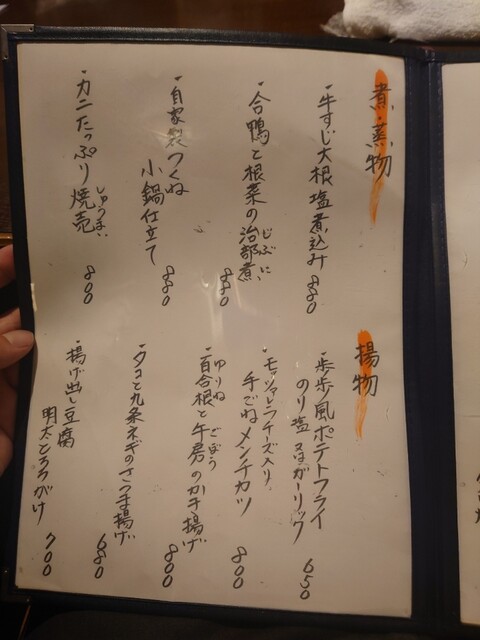 煮・蒸物
・牛すじ大根塩煮込み 880
・合鴨と根菜の治部煮 880
じぶに
・自家製つくね
小鍋仕立て 880
・カニたっぷり焼売 800
しゅうまい
揚物
・歩歩風ポテトフライ
のり塩 又はガーリック 650
・モッツァレラチーズ入り
手ごねメンチカツ 800
・百合根と牛房のかき揚げ 800
ゆりね ごぼう
・タコと九条ネギのさつま揚げ 680
・揚げ出し豆腐
明太とろろがけ 700